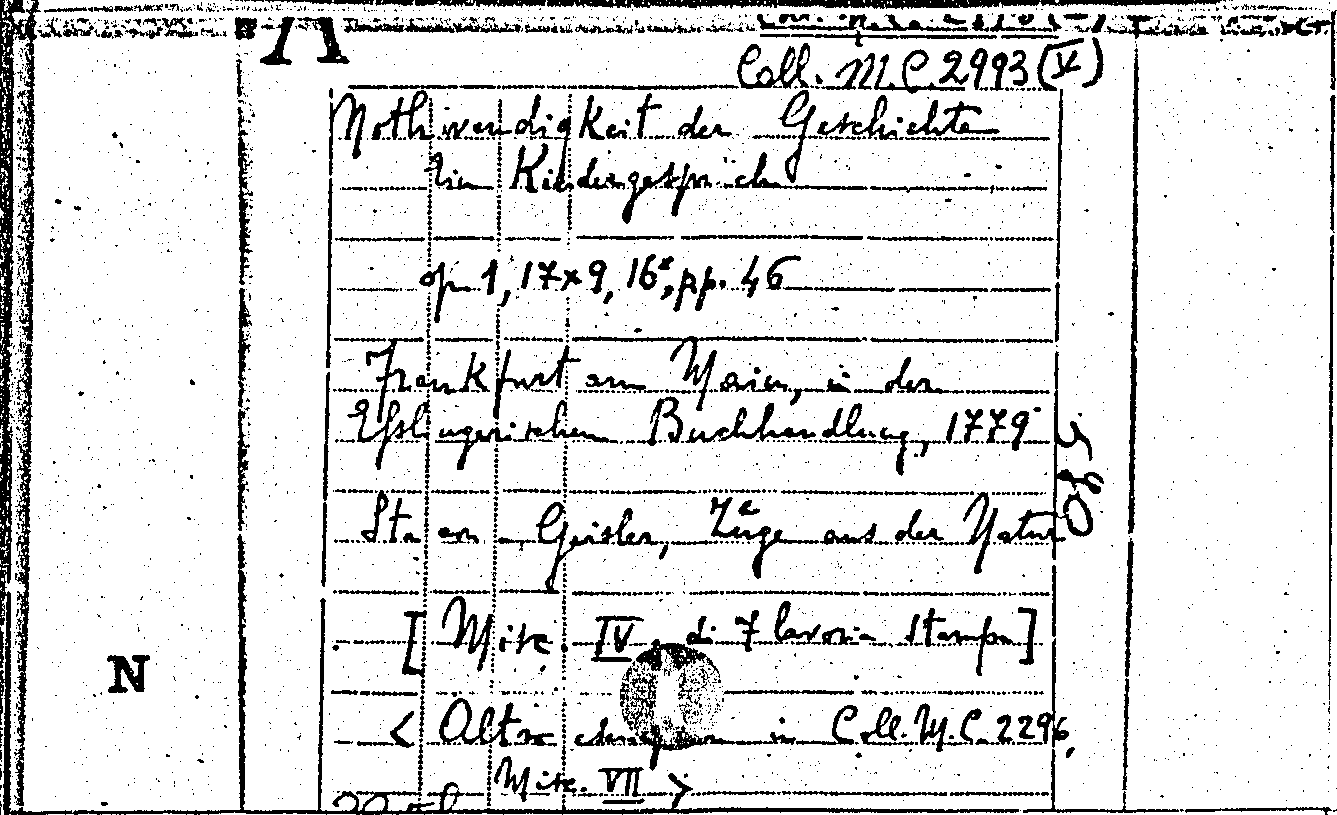 Coll. M.C. 2993 (V)
Nothwendigkeit der Geschichte
Kindergespräch
op. 1, 17x9, 16°, pp. 46
Frankfurt am Main, in der
Eßlingerischen Buchhandlung, 1779
580
Sta con Geisler, Züge aus der Natur
[Misc. IV, di 7 lavori a stampa]
N
< Altro in Coll. M.C. 2296,
Misc. VII >